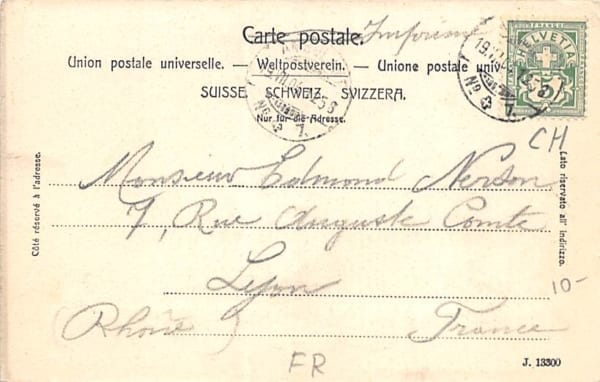 Carte postale. Imprimé
Union postale universelle. — Weltpostverein. — Unione postale uni
SUISSE. SCHWEIZ. SVIZZERA.
Nur für die Adresse.
HELVETIA
CH
Côté réservé à l'adresse.
Lato riservato all' indirizzo.
Monsieur Edmond Nerson
7, Rue Auguste Comte
Lyon
10-
(Rhône) France
FR
J. 13300